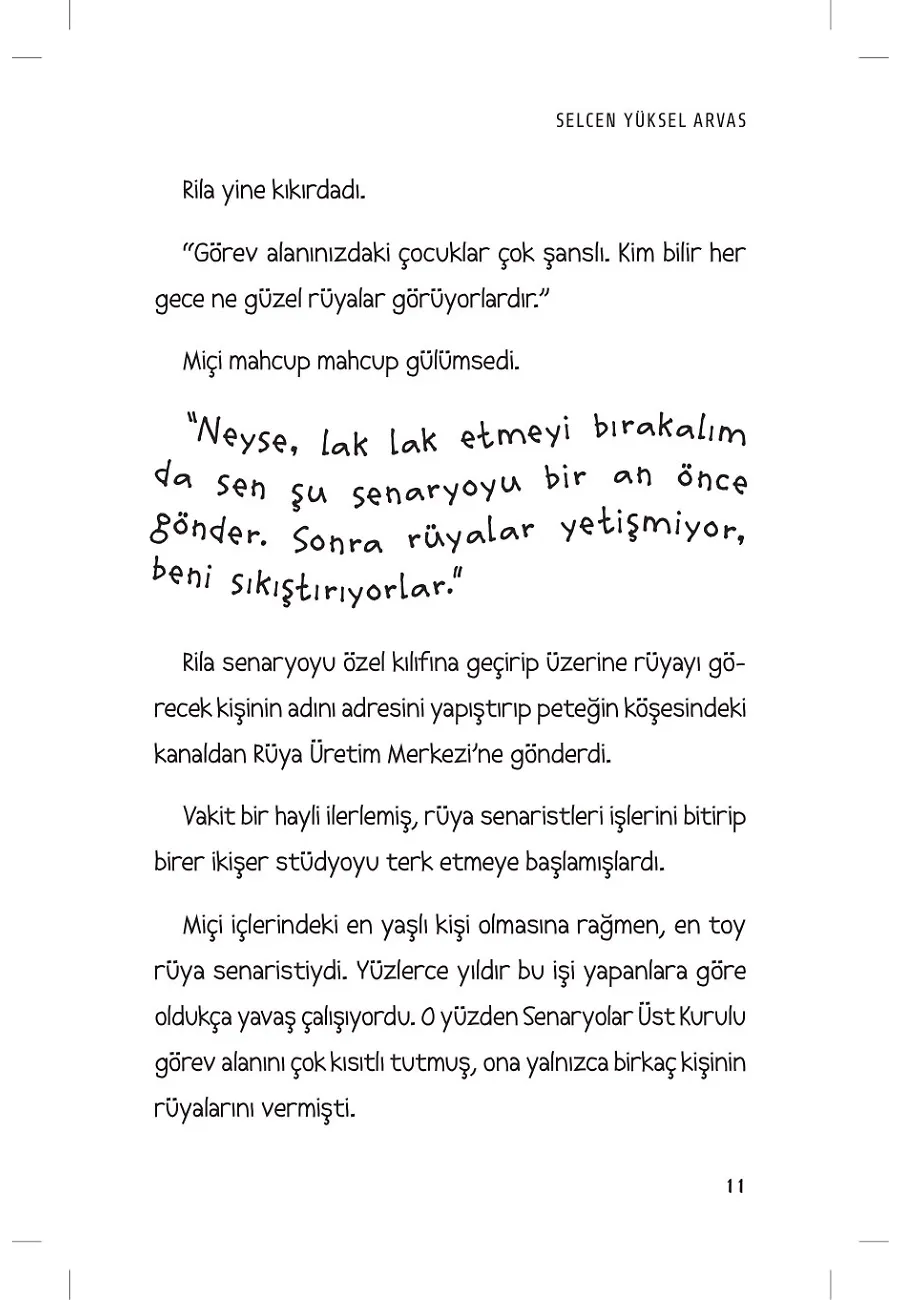 SELCEN YÜKSEL ARVAS
Rila yine kıkırdadı.
“Görev alanınızdaki çocuklar çok şanslı. Kim bilir her
gece ne güzel rüyalar görüyorlardır.”
Miçi mahcup mahcup gülümsedi.
“Neyse, lak lak etmeyi bırakalım
da sen şu senaryoyu bir an önce
gönder. Sonra rüyalar yetişmiyor,
beni sıkıştırıyorlar.”
Rila senaryoyu özel kılıfına geçirip üzerine rüyayı gö-
recek kişinin adını adresini yapıştırıp peteğin köşesindeki
kanaldan Rüya Üretim Merkezi’ne gönderdi.
Vakit bir hayli ilerlemiş, rüya senaristleri işlerini bitirip
birer ikişer stüdyoyu terk etmeye başlamışlardı.
Miçi içlerindeki en yaşlı kişi olmasına rağmen, en toy
rüya senaristiydi. Yüzlerce yıldır bu işi yapanlara göre
oldukça yavaş çalışıyordu. O yüzden Senaryolar Üst Kurulu
görev alanını çok kısıtlı tutmuş, ona yalnızca birkaç kişinin
rüyalarını vermişti.
11